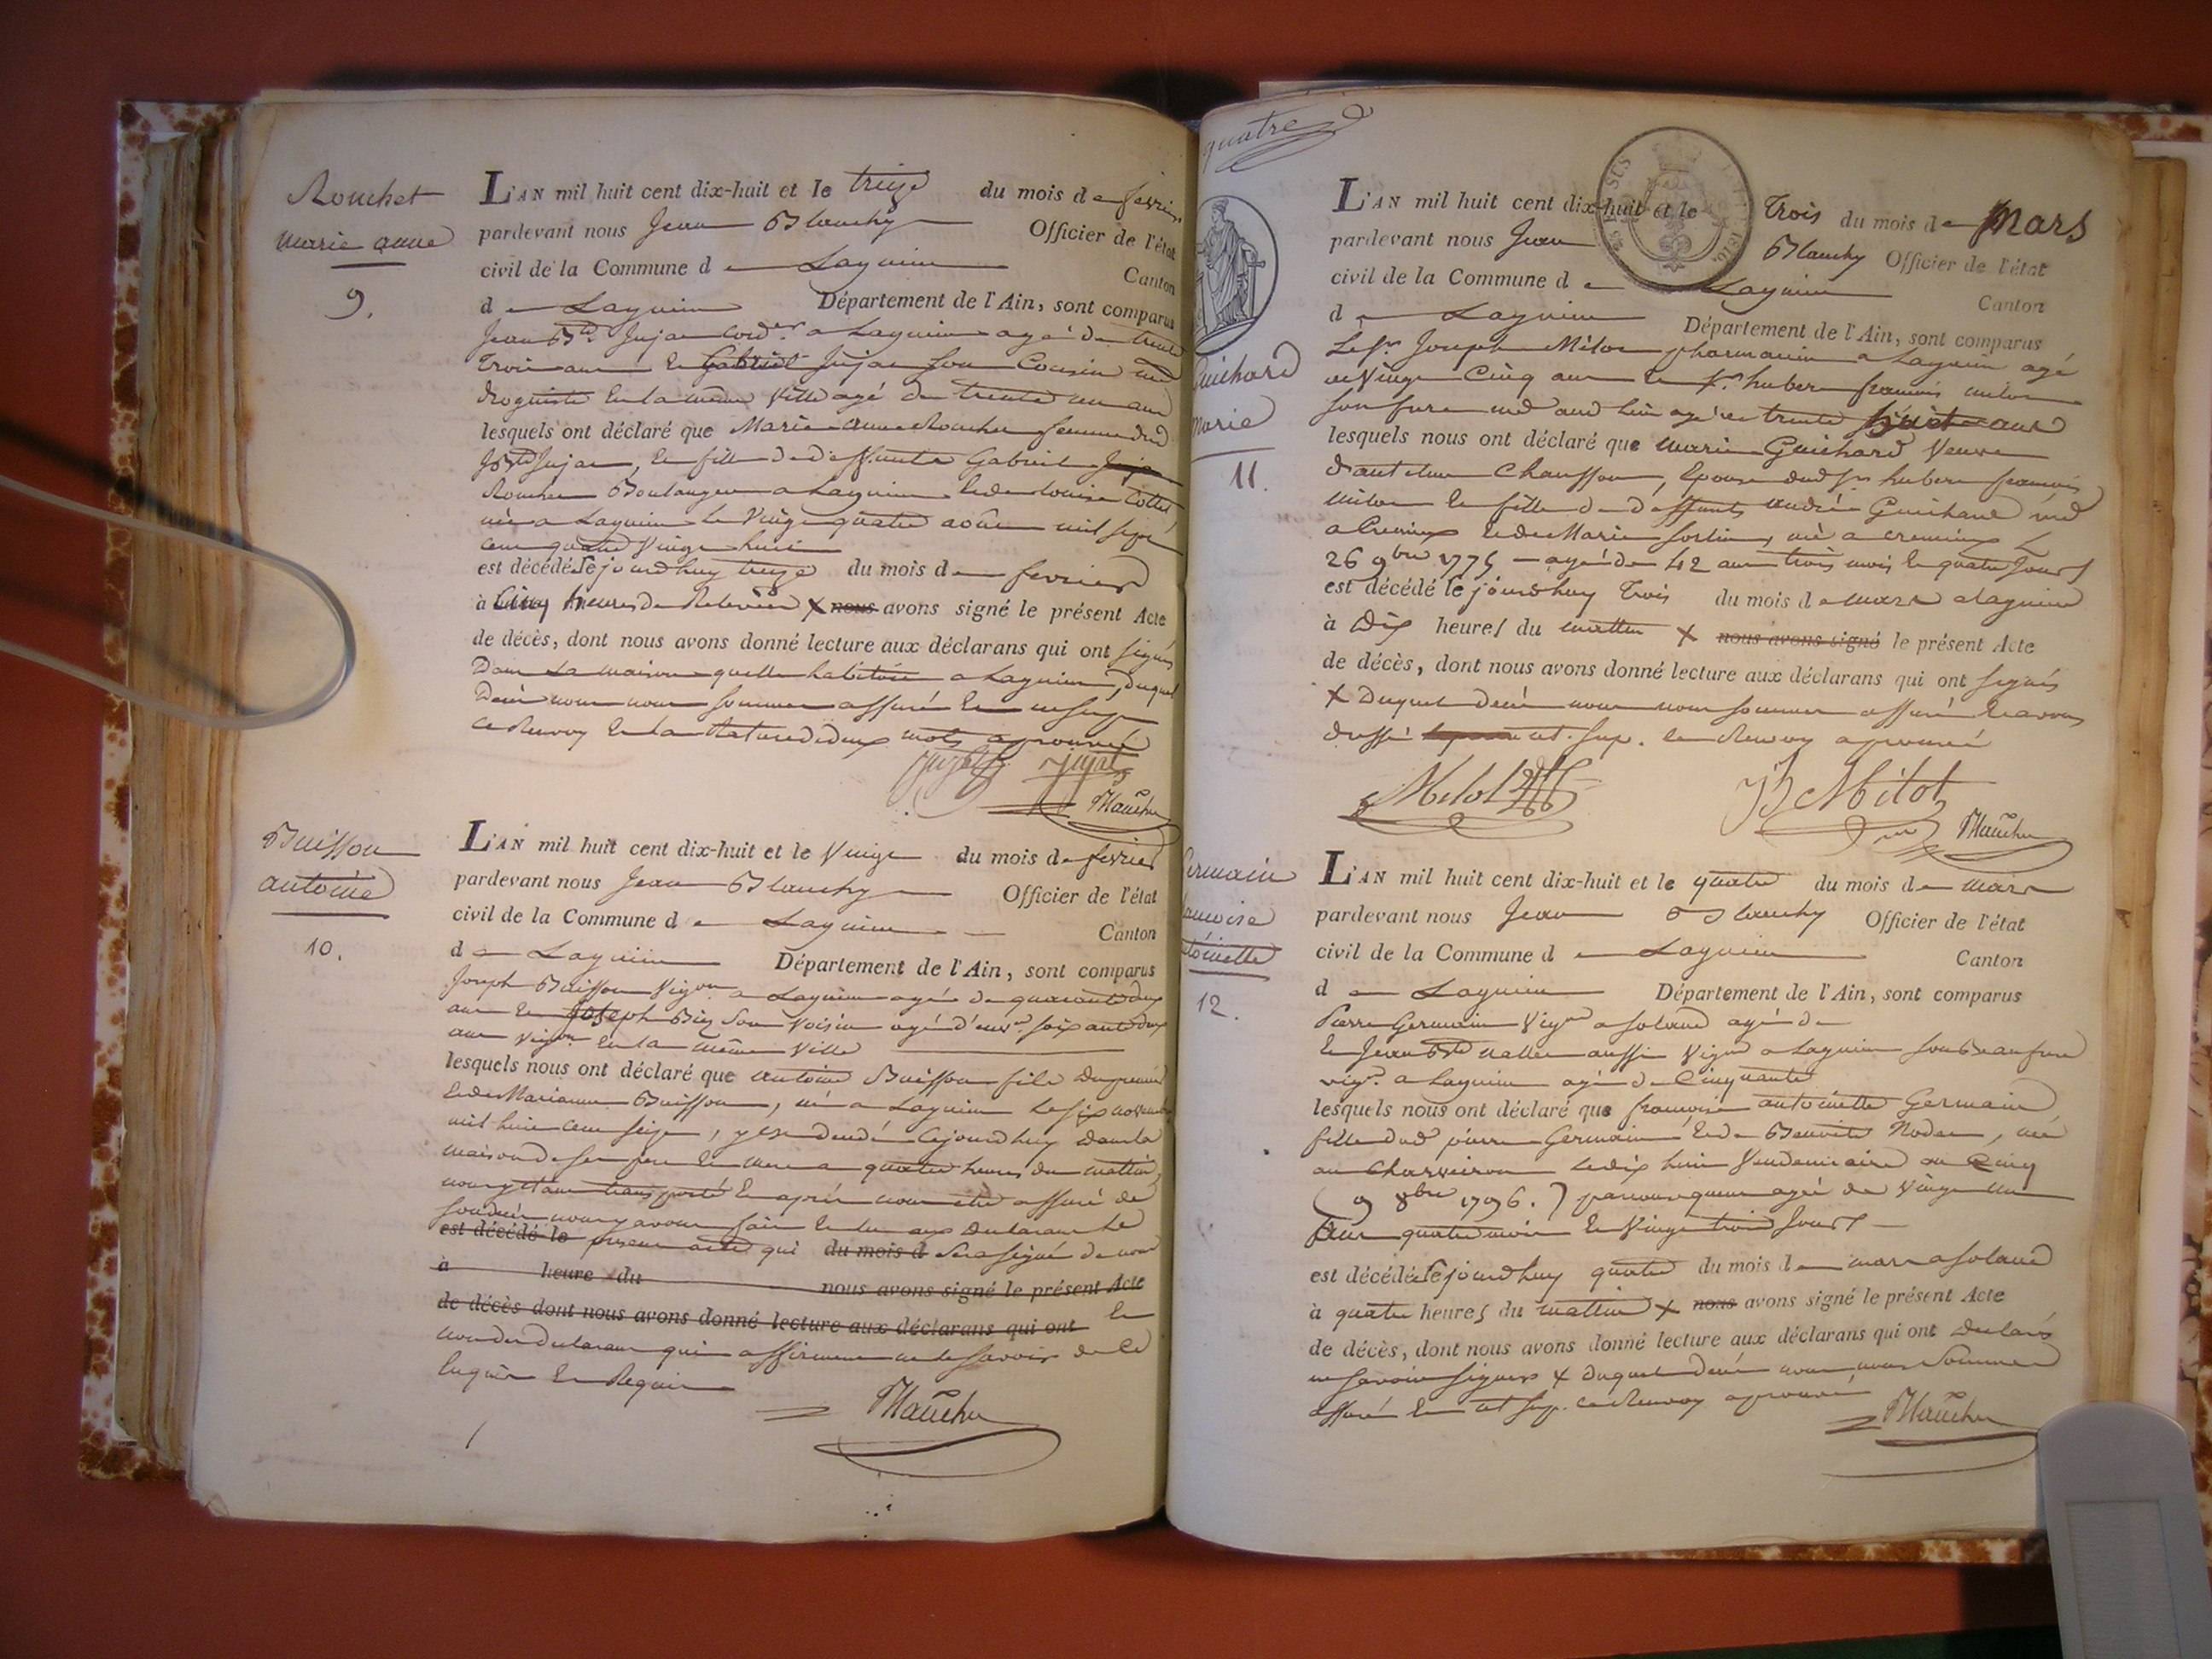 Rouchet
marie anne
9.
L'AN mil huit cent dix-huit et le treize du mois de fevrier
pardevant nous Jean Blanchy Officier de l'état
civil de la Commune de Lagnieu Canton
de Lagnieu Département de l'Ain, sont comparus
Jean Bte Jujat a Lagnieu agé de trente
trois ans et Gabriel Jujat son Cousin md
droguiste en la même ville agé de trente un ans
lesquels ont déclaré que Marie anne Rouchet femme dud
Jujat, et fille de deffunts Gabriel
Rouchet Boulanger a Lagnieu et de Louise
née a Lagnieu le vingt quatre août mil sept
cent quatre vingt huit
est décédée cejourdhuy treize du mois de fevrier
à Cinq heures de Relevée X nous avons signé le présent Acte
de décès, dont nous avons donné lecture aux déclarans qui ont signés
Dans la maison quelle habitoit a Lagnieu, duquel
Décès nous nous sommes assuré
ce Renvoy et la Rature de deux mots aprouvée
Jujat Jujat
Blanchy
Buisson
antoine
10.
L'AN mil huit cent dix-huit et le vingt du mois de fevrier
pardevant nous Jean Blanchy Officier de l'état
civil de la Commune de Lagnieu Canton
de Lagnieu Département de l'Ain, sont comparus
Joseph Buisson Vigon a Lagnieu agé de quarante deux
ans et Joseph son voisin agé d'env. soixante deux
ans vigon en la même ville
lesquels nous ont déclaré que antoine Buisson fils du premier
et de Marianne Buisson, né a Lagnieu le six novembre
mil huit cent seize, y est decedé cejourdhuy dans la
maison de ses pere et mere a quatre heures du mattin,
nous y etant transporté et après nous être assuré de
son decès nous y avons fait et lu aux declarans le
est décédé le present acte qui du mois d sera signé de nous
à heure du nous avons signé le présent Acte
de décès dont nous avons donné lecture aux déclarans qui ont et
non des declarans qui affirment ne le savoir de ce
Enquis et Requis
Blanchy
quatre
L'AN mil huit cent dix-huit et le Trois du mois de Mars
pardevant nous Jean Blanchy Officier de l'état
civil de la Commune de Lagnieu Canton
de Lagnieu Département de l'Ain, sont comparus
Le Sr Joseph Milot pharmacien a Lagnieu agé
de vingt Cinq ans et Sr hubert francois milot
son frere md aud lieu agé de trente huit ans
Guichard
Marie
11.
lesquels nous ont déclaré que marie Guichard veuve
d'antoine Chausson, Epouse dud Sr hubert francois
milot et fille de deffunts andré Guichard md
a Cremieu et de Marie, née a cremieu le
26 9bre 1775 agée de 42 ans trois mois et quatre jours
est décédé le jourdhuy Trois du mois de mars a lagnieu
à Dix heures du mattin X nous avons signé le présent Acte
de décès, dont nous avons donné lecture aux déclarans qui ont signés
X Duquel decès nous nous sommes assuré et avons
dressé ut. sup. ce Renvoy aprouvé
Milot JB Milot
Blanchy
Germain
francoise
antoinette
12.
L'AN mil huit cent dix-huit et le quatre du mois de mars
pardevant nous Jean Blanchy Officier de l'état
civil de la Commune de Lagnieu Canton
de Lagnieu Département de l'Ain, sont comparus
Pierre Germain Vigon a agé de
et Jean Bte aussi Vigon a Lagnieu son Beau frere
vigon a Lagnieu agé de Cinquante
lesquels nous ont déclaré que francoise antoinette Germain
fille dud pierre Germain et de Benoite, née
au le dix huit Vendemiaire an Cinq
(9 8bre 1796.) agée de vingt un
ans quatre mois et vingt trois jours
est décédée cejourdhuy quatre du mois de mars
à quatre heures du mattin X nous avons signé le présent Acte
de décès, dont nous avons donné lecture aux déclarans qui ont declarés
ne savoir signer X duquel decès nous nous sommes
assuré ut sup. ce Renvoy aprouvé
Blanchy